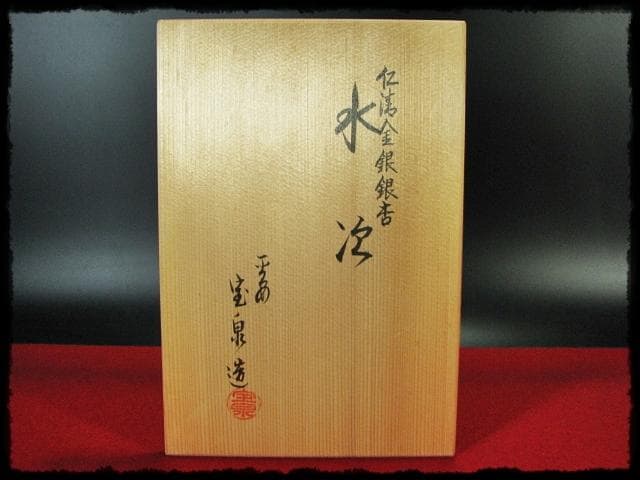 仁清金銀銀杏
水次
平安
宝泉造
宝泉